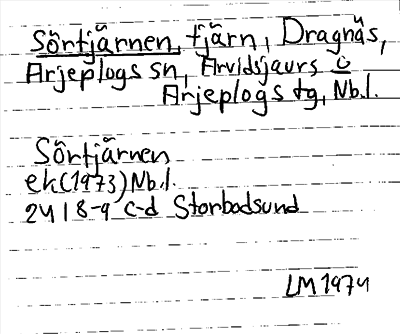 Sörtjärnen, tjärn, Dragnäs,
Arjeplogs sn, Arvidsjaurs o
Arjeplogs tg, Nb.l.
Sörtjärnen
ek(1973)Nb.l.
24I 8-9 c-d Storbodsund
LM 1974